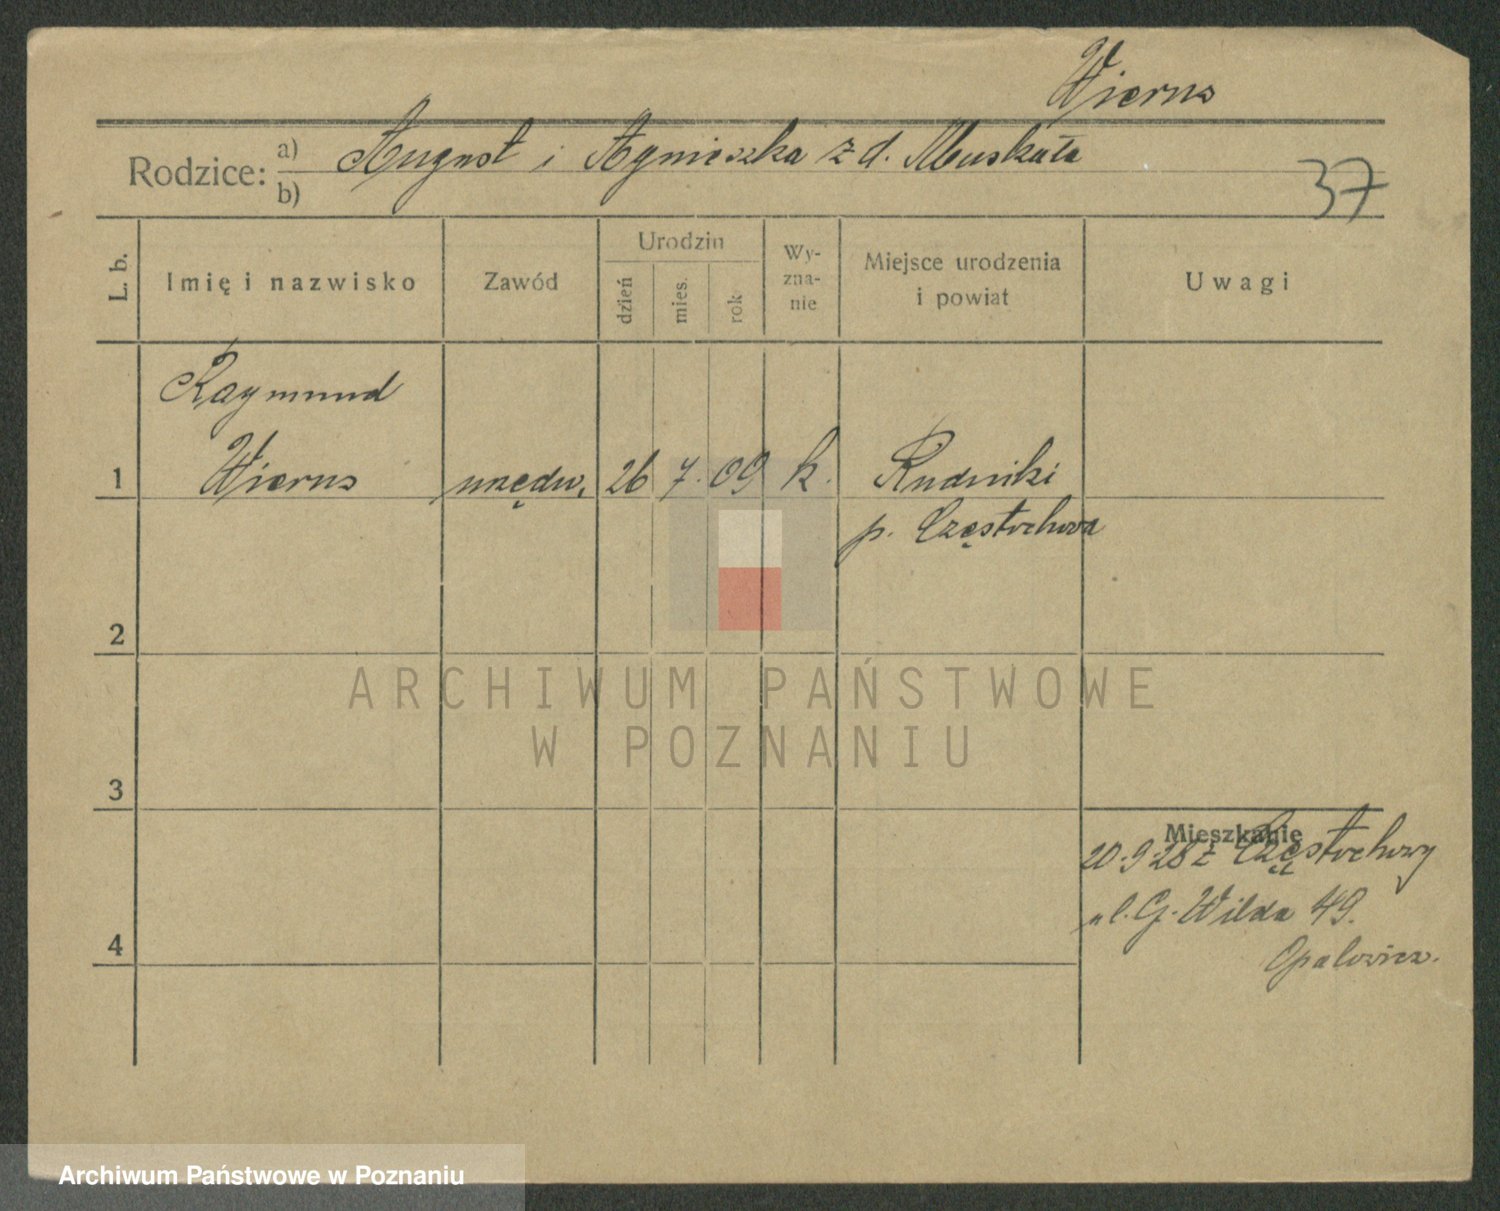 Wierus
Rodzice: a) August i Agnieszka z d. Muskała
b)
37
L. b.
Imię i nazwisko
Zawód
Urodzin
dzień
mies.
rok
Wy-
zna-
nie
Miejsce urodzenia
i powiat
Uwagi
Raymund
1 Wierus urzędn. 26 7. 09 k. Rudniki
p. Częstochowa
2
ARCHIWUM PAŃSTWOWE
W POZNANIU
3
Mieszkanie
20.9.28 z Częstochowy
ul. G. Wilda 49.
4
Archiwum Państwowe w Poznaniu